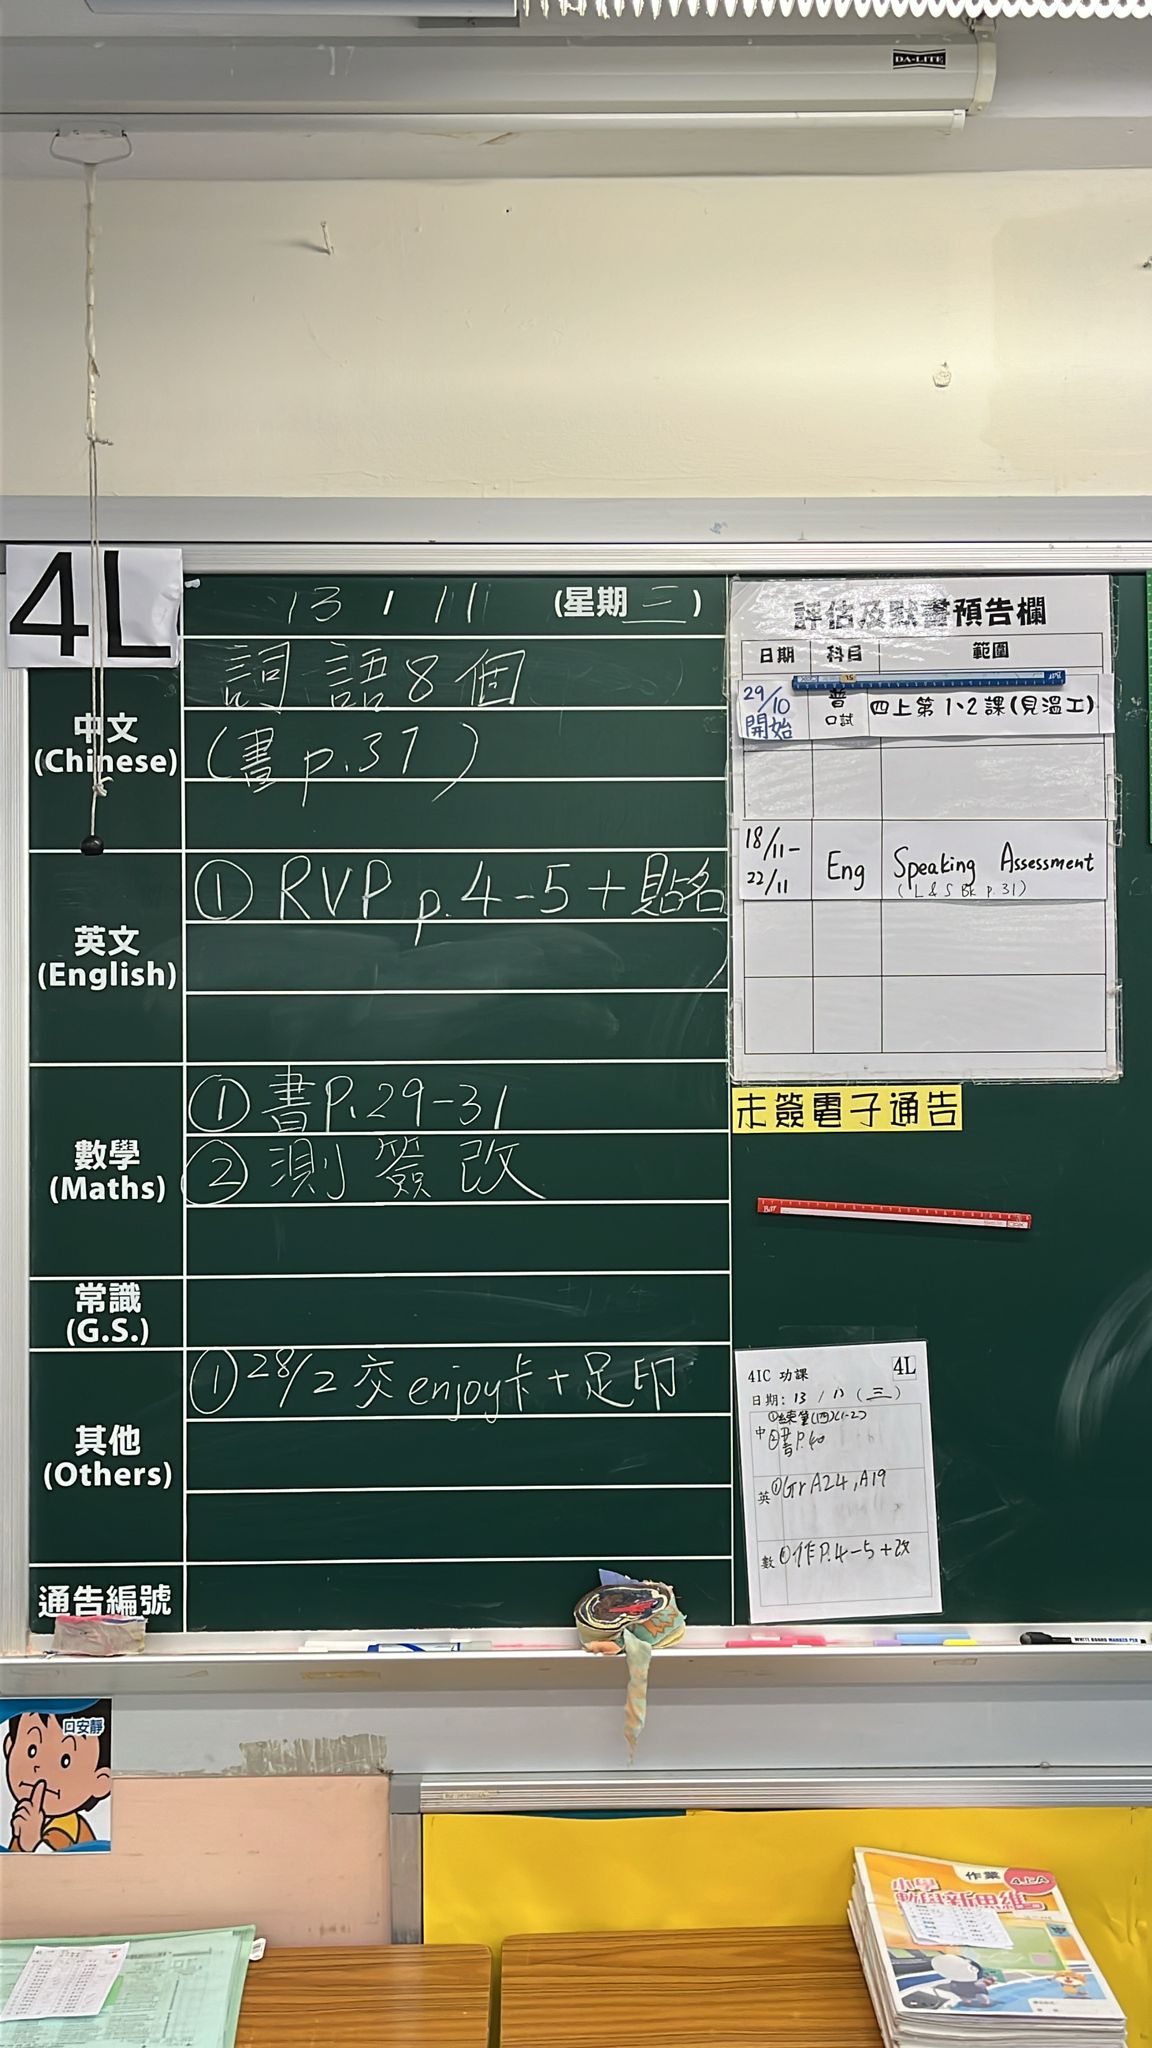 DA-LITE
4L
13 / 11 (星期三)
中文
(Chinese)
詞語8個
(書p.37)
英文
(English)
① RVP p.4-5 + 貼名
數學
(Maths)
① 書P.29-31
② 測簽改
常識
(G.S.)
其他
(Others)
① 28/2 交enjoy卡+足印
通告編號
評估及默書預告欄
日期 科目 範圍
29/10 開始 普 口試 四上第1、2課(見溫工)
18/11-22/11 Eng Speaking Assessment
(L&S Bk p.31)
未簽電子通告
4IC 功課 4L
日期: 13 / 11 (三)
中 ①練筆(四)(1-2)
②書P.40
英 ①Gr A24, A19
數 ①作P.4-5+改
WHITE BOARD MARKER PEN
口安靜
作業
4上A